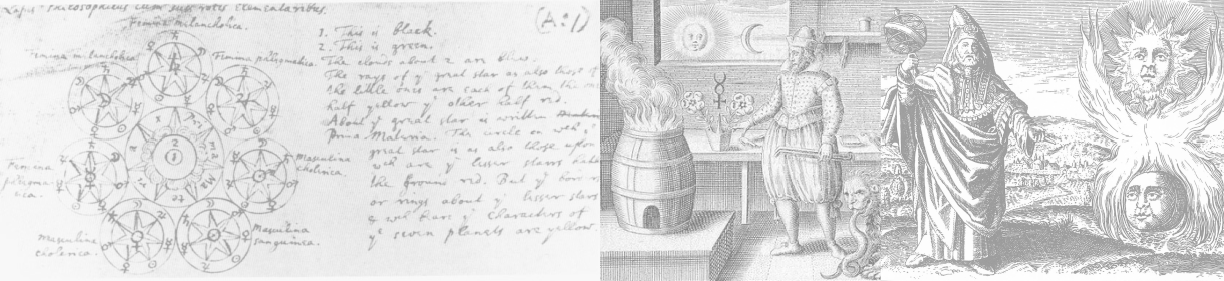 Lapis Philosophicus cum suis rotis elementaribus.
(A:1)
Femina melancholica.
Femina melancholica
Femina phlegmatica.
Femina
phlegma-
tica.
Masculina
cholerica.
Masculina
cholerica.
Masculina
sanguinea.
1. This is black.
2. This is green.
The clouds about 2 are blue.
The rays of yͤ great star as also those of
the little ones are each of them the one
half yellow yͤ other half red.
About yͤ great star is written
Prima Materia. The circle on wᶜʰ yͤ
great star is as also those upon
wᶜʰ are yͤ lesser stars
the ground red. But yͤ
or rays about yͤ lesser stars
wᶜʰ bears yͤ Characters of
yͤ seven planets are yellow.